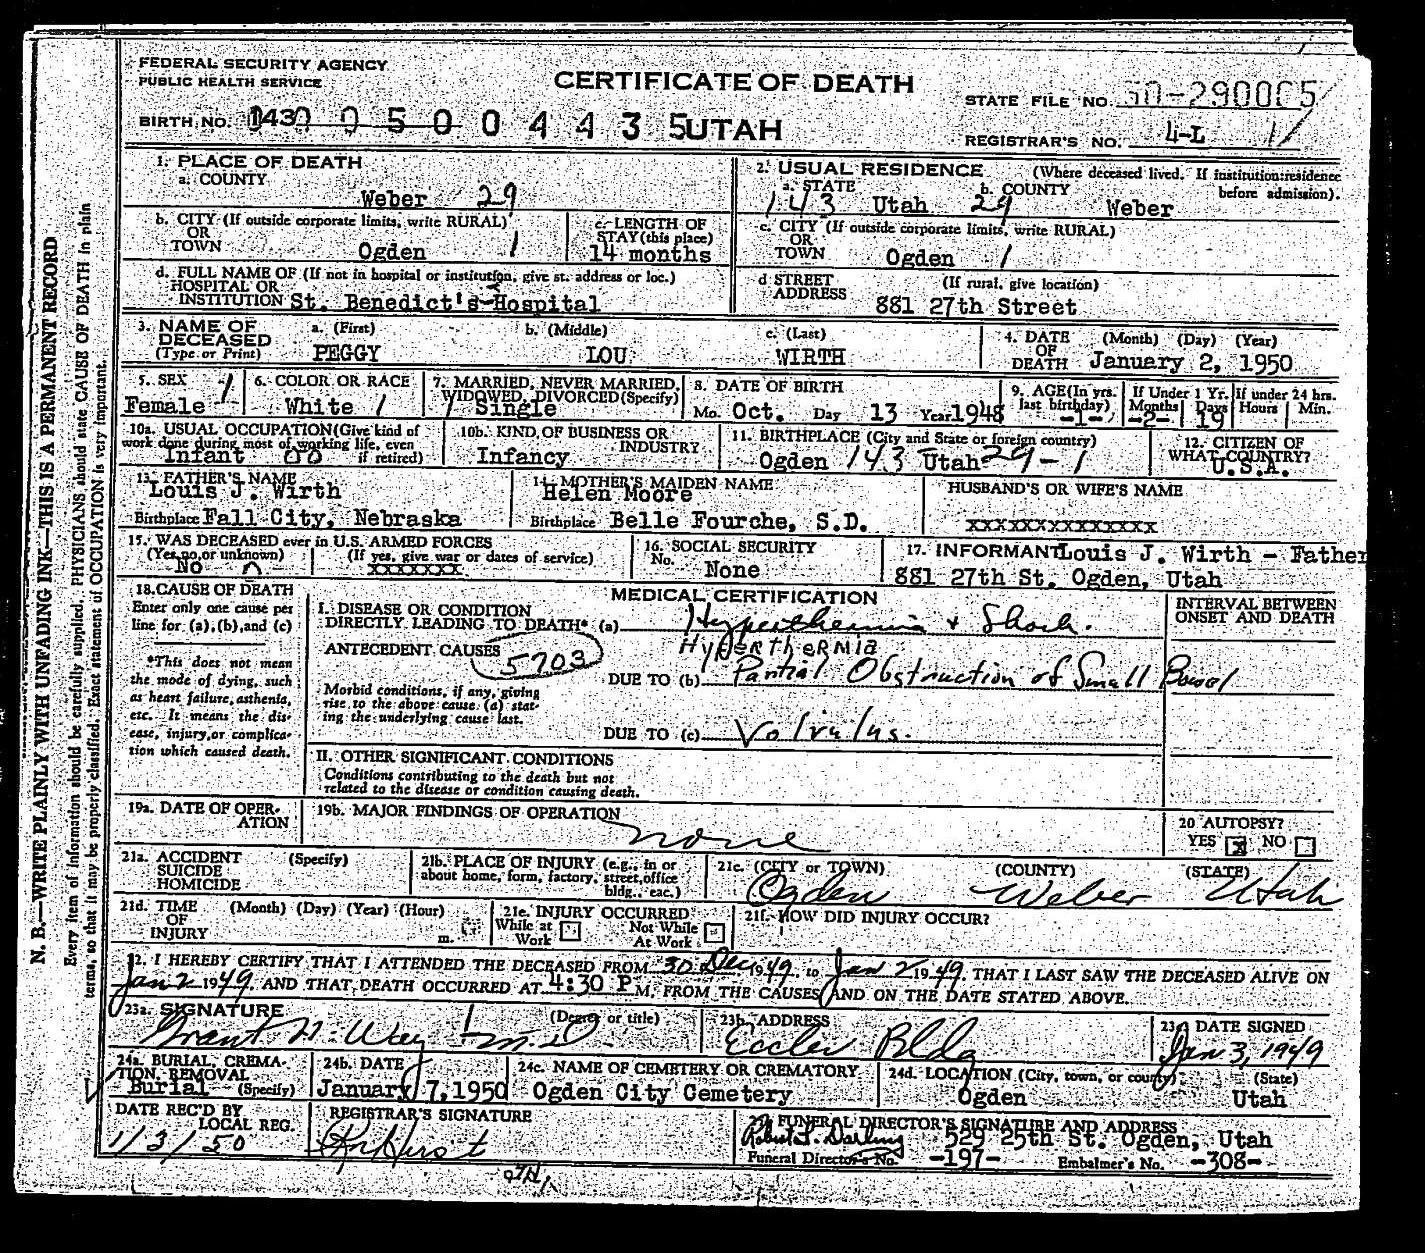 FEDERAL SECURITY AGENCY
PUBLIC HEALTH SERVICE
CERTIFICATE OF DEATH
STATE FILE NO.
BIRTH NO. 143 0 5 0 0 4 4 3 5 UTAH
REGISTRAR'S NO. 4-L
1. PLACE OF DEATH
a. COUNTY
Weber 29
2. USUAL RESIDENCE (Where deceased lived. If institution:residence before admission).
a. STATE b. COUNTY
143 Utah 29 Weber
b. CITY (If outside corporate limits, write RURAL)
OR
TOWN Ogden 1
c. LENGTH OF
STAY (this place)
14 months
c. CITY (If outside corporate limits, write RURAL)
OR
TOWN Ogden 1
d. FULL NAME OF (If not in hospital or institution, give st. address or loc.)
HOSPITAL OR
INSTITUTION St. Benedict's Hospital
d STREET (If rural, give location)
ADDRESS
881 27th Street
3. NAME OF
DECEASED
(Type or Print)
a. (First) b. (Middle) c. (Last)
PEGGY LOU WIRTH
4. DATE (Month) (Day) (Year)
OF
DEATH January 2, 1950
5. SEX 1
Female
6. COLOR OR RACE
White 1
7. MARRIED, NEVER MARRIED,
WIDOWED, DIVORCED (Specify)
1 Single
8. DATE OF BIRTH
Mo. Oct. Day 13 Year 1948
9. AGE (In yrs.
last birthday)
-1-
If Under 1 Yr.
Months Days
-2- 19
If under 24 hrs.
Hours Min.
10a. USUAL OCCUPATION (Give kind of
work done during most of working life, even
if retired)
Infant 00
10b. KIND OF BUSINESS OR
INDUSTRY
Infancy
11. BIRTHPLACE (City and State or foreign country)
Ogden 143 Utah 29-1
12. CITIZEN OF
WHAT COUNTRY?
U.S.A.
13. FATHER'S NAME
Louis J. Wirth
Birthplace Fall City, Nebraska
14. MOTHER'S MAIDEN NAME
Helen Moore
Birthplace Belle Fourche, S.D.
HUSBAND'S OR WIFE'S NAME
XXXXXXXXXXXXXX
15. WAS DECEASED ever in U.S. ARMED FORCES
(Yes, no, or unknown) (If yes, give war or dates of service)
No XXXXXXX
16. SOCIAL SECURITY
No. None
17. INFORMANT Louis J. Wirth - Father
881 27th St. Ogden, Utah
18. CAUSE OF DEATH
Enter only one cause per
line for (a), (b), and (c)
*This does not mean
the mode of dying, such
as heart failure, asthenia,
etc. It means the dis-
ease, injury, or complica-
tion which caused death.
MEDICAL CERTIFICATION
INTERVAL BETWEEN
ONSET AND DEATH
I. DISEASE OR CONDITION
DIRECTLY LEADING TO DEATH* (a) Hyperthermia + Shock.
HYPERTHERMIA
ANTECEDENT CAUSES 5703
Morbid conditions, if any, giving
rise to the above cause (a) stat-
ing the underlying cause last.
DUE TO (b) Partial Obstruction of Small Bowel
DUE TO (c) Volvulus.
II. OTHER SIGNIFICANT CONDITIONS
Conditions contributing to the death but not
related to the disease or condition causing death.
19a. DATE OF OPER-
ATION
19b. MAJOR FINDINGS OF OPERATION
none
20 AUTOPSY?
YES x NO
21a. ACCIDENT (Specify)
SUICIDE
HOMICIDE
21b. PLACE OF INJURY (e.g., in or
about home, form, factory, street, office
bldg., eac.)
21c. (CITY or TOWN) (COUNTY) (STATE)
Ogden Weber Utah
21d. TIME (Month) (Day) (Year) (Hour)
OF
INJURY m.
21e. INJURY OCCURRED
While at Work Not While At Work
21f. HOW DID INJURY OCCUR?
22. I HEREBY CERTIFY THAT I ATTENDED THE DECEASED FROM 30 Dec 1949 to Jan 2 1949 THAT I LAST SAW THE DECEASED ALIVE ON
Jan 2 1949 AND THAT DEATH OCCURRED AT 4:30 P M. FROM THE CAUSES AND ON THE DATE STATED ABOVE.
23a. SIGNATURE (Degree or title)
Grant H. Way M.D.
23b. ADDRESS
Eccles Bldg
23c DATE SIGNED
Jan 3, 1949
24a. BURIAL, CREMA-
TION, REMOVAL
Burial (Specify)
24b. DATE
January 7, 1950
24c. NAME OF CEMETERY OR CREMATORY
Ogden City Cemetery
24d. LOCATION (City, town, or county) (State)
Ogden Utah
DATE REC'D BY
LOCAL REG.
1/3/50
REGISTRAR'S SIGNATURE
25. FUNERAL DIRECTOR'S SIGNATURE AND ADDRESS
Robert J. Darling 529 25th St. Ogden, Utah
Funeral Director's No. -197- Embalmer's No. -308-
N. B.—WRITE PLAINLY WITH UNFADING INK—THIS IS A PERMANENT RECORD
Every item of information should be carefully supplied. PHYSICIANS should state CAUSE OF DEATH in plain
terms, so that it may be properly classified. Exact statement of OCCUPATION is very important.